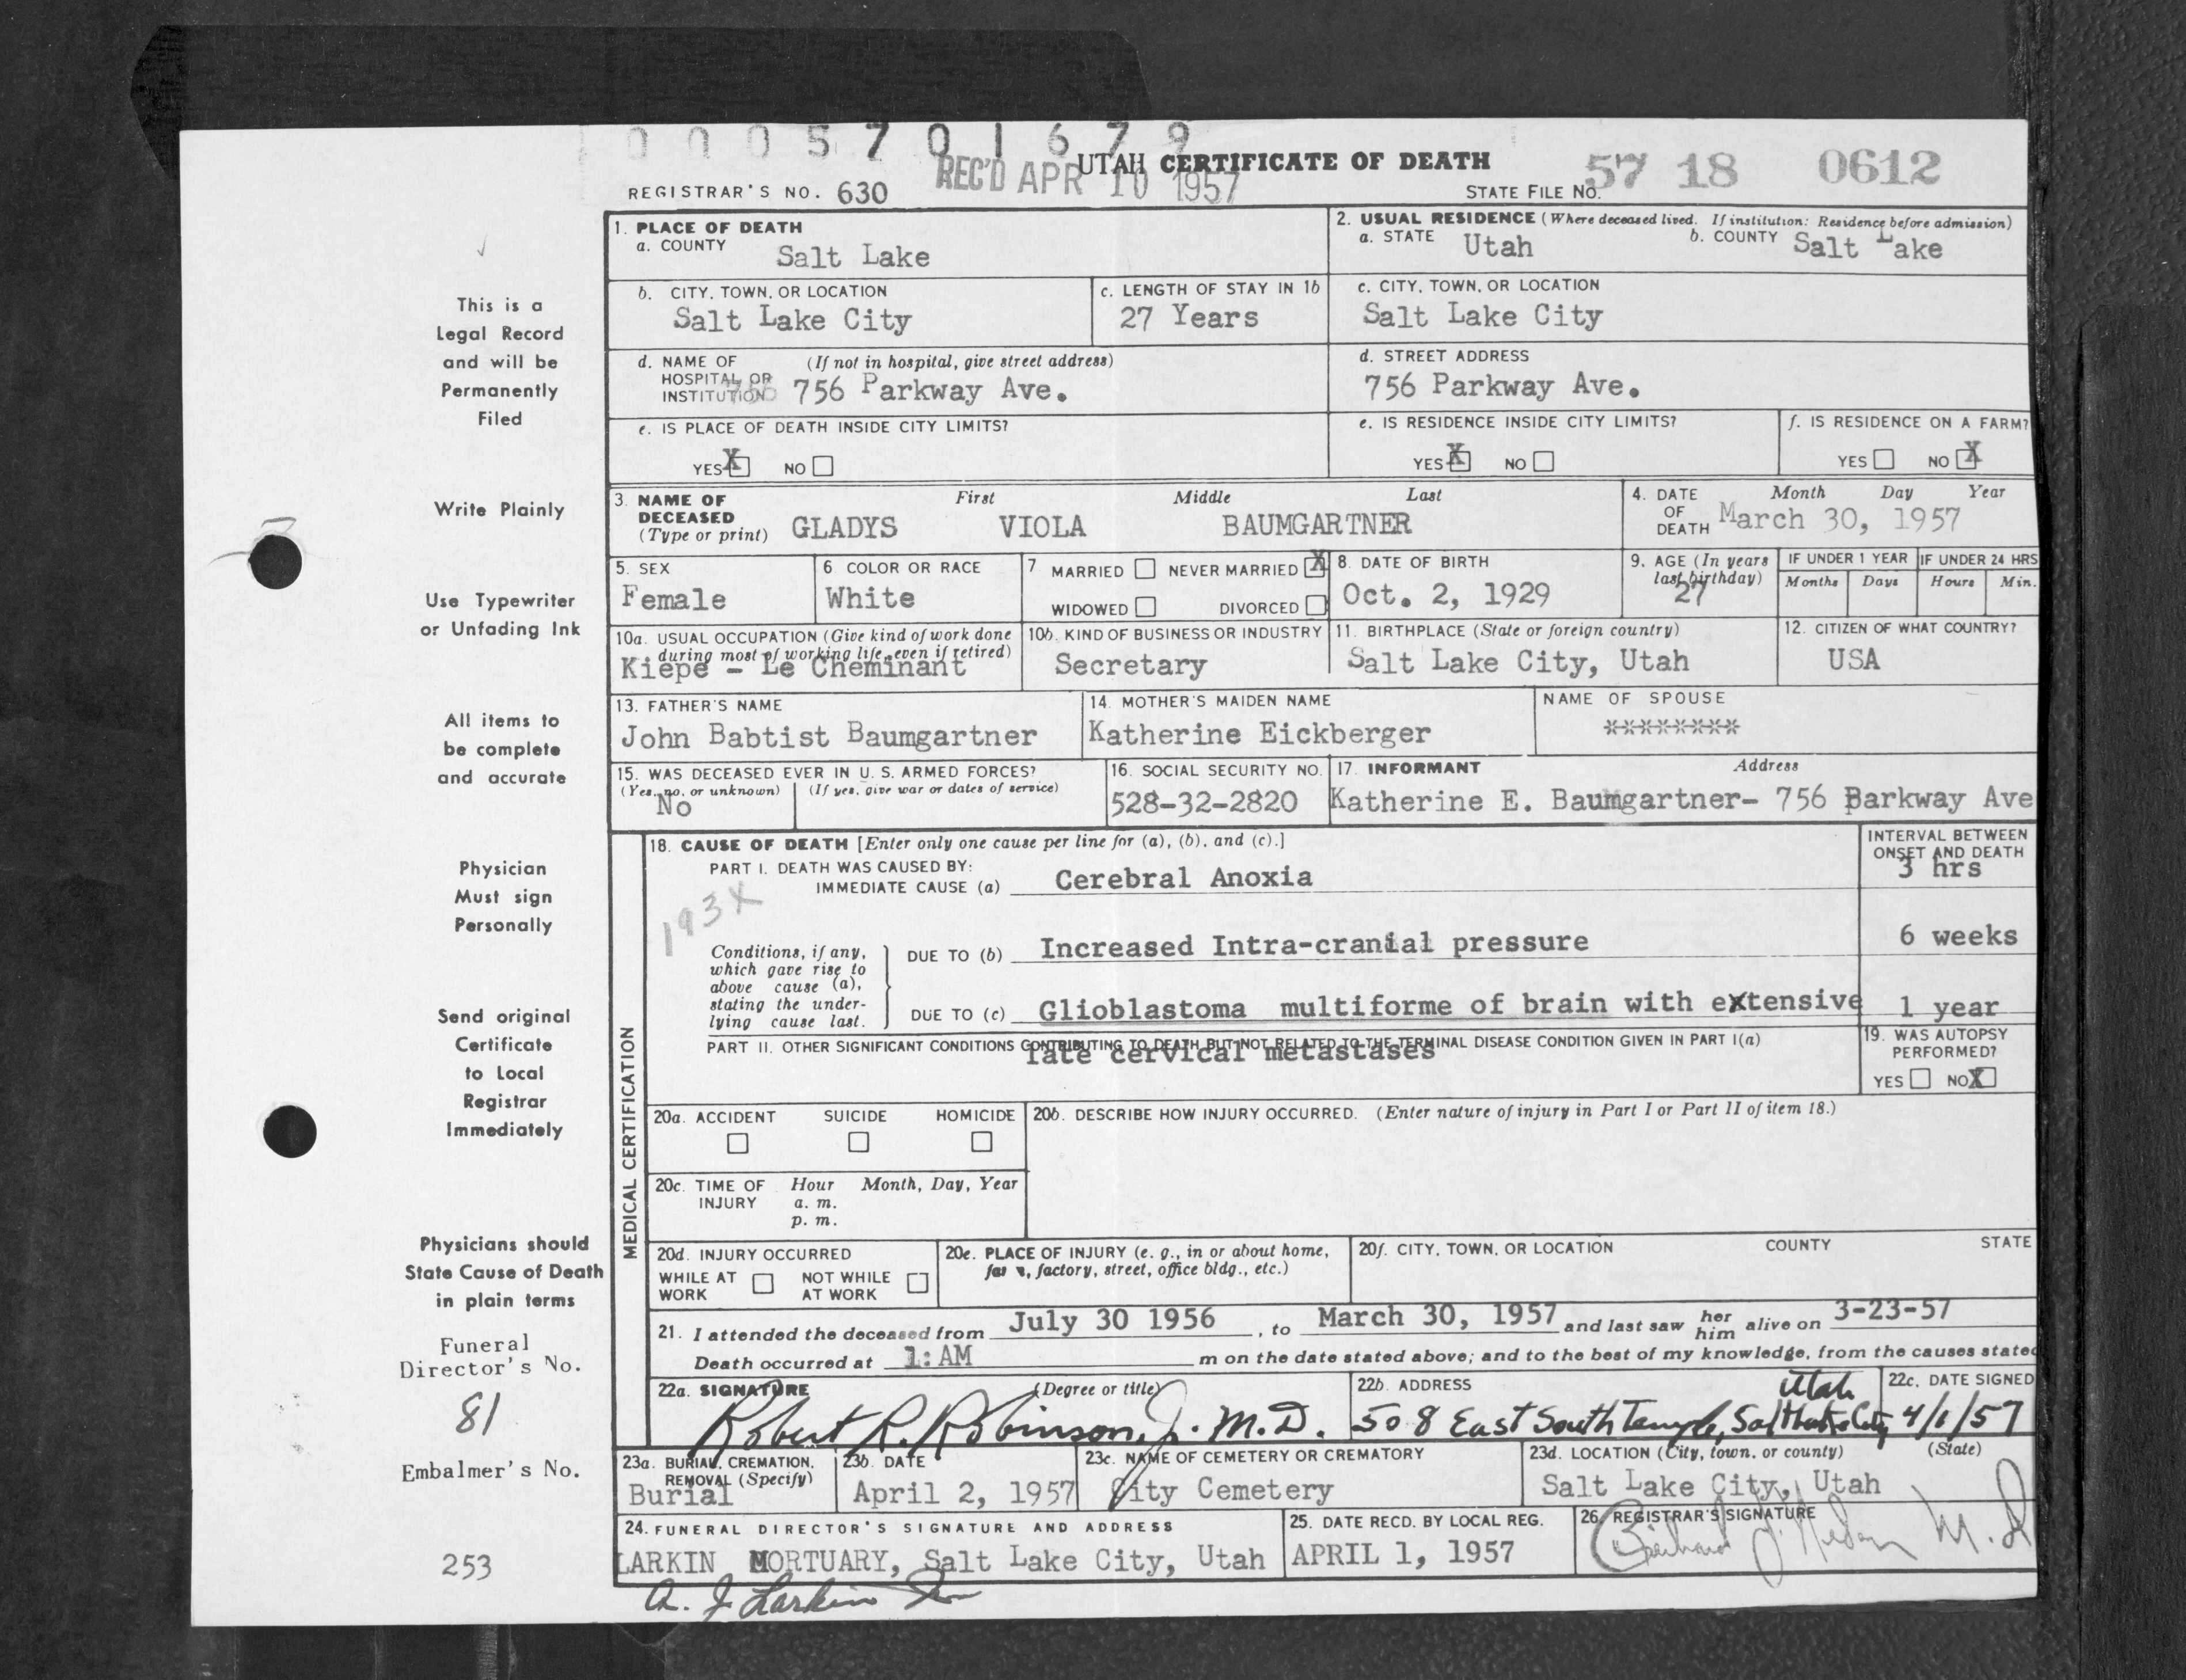 0 0 0 5 7 0 1 6 7 9
UTAH CERTIFICATE OF DEATH
REC'D APR 10 1957
REGISTRAR'S NO. 630
STATE FILE NO. 57 18 0612
1. PLACE OF DEATH
a. COUNTY Salt Lake
2. USUAL RESIDENCE (Where deceased lived. If institution: Residence before admission)
a. STATE Utah b. COUNTY Salt Lake
b. CITY, TOWN, OR LOCATION
Salt Lake City
c. LENGTH OF STAY IN 1b
27 Years
c. CITY, TOWN, OR LOCATION
Salt Lake City
d. NAME OF HOSPITAL OR INSTITUTION (If not in hospital, give street address)
756 Parkway Ave.
d. STREET ADDRESS
756 Parkway Ave.
e. IS PLACE OF DEATH INSIDE CITY LIMITS?
YES X NO
e. IS RESIDENCE INSIDE CITY LIMITS?
YES X NO
f. IS RESIDENCE ON A FARM?
YES NO X
3. NAME OF DECEASED (Type or print) First Middle Last
GLADYS VIOLA BAUMGARTNER
4. DATE OF DEATH Month Day Year
March 30, 1957
5. SEX
Female
6. COLOR OR RACE
White
7 MARRIED NEVER MARRIED X
WIDOWED DIVORCED
8. DATE OF BIRTH
Oct. 2, 1929
9. AGE (In years last birthday)
27
IF UNDER 1 YEAR IF UNDER 24 HRS
Months Days Hours Min.
10a. USUAL OCCUPATION (Give kind of work done during most of working life, even if retired)
Kiepe - Le Cheminant
10b. KIND OF BUSINESS OR INDUSTRY
Secretary
11. BIRTHPLACE (State or foreign country)
Salt Lake City, Utah
12. CITIZEN OF WHAT COUNTRY?
USA
13. FATHER'S NAME
John Babtist Baumgartner
14. MOTHER'S MAIDEN NAME
Katherine Eickberger
NAME OF SPOUSE
********
15. WAS DECEASED EVER IN U. S. ARMED FORCES?
(Yes, no, or unknown) (If yes, give war or dates of service)
No
16. SOCIAL SECURITY NO.
528-32-2820
17. INFORMANT Address
Katherine E. Baumgartner- 756 Parkway Ave
MEDICAL CERTIFICATION
18. CAUSE OF DEATH [Enter only one cause per line for (a), (b), and (c).]
INTERVAL BETWEEN ONSET AND DEATH
PART I. DEATH WAS CAUSED BY:
IMMEDIATE CAUSE (a) Cerebral Anoxia 3 hrs
193X
Conditions, if any, which gave rise to above cause (a), stating the underlying cause last.
DUE TO (b) Increased Intra-cranial pressure 6 weeks
DUE TO (c) Glioblastoma multiforme of brain with extensive 1 year
late cervical metastases
PART II. OTHER SIGNIFICANT CONDITIONS CONTRIBUTING TO DEATH BUT NOT RELATED TO THE TERMINAL DISEASE CONDITION GIVEN IN PART I(a)
19. WAS AUTOPSY PERFORMED?
YES NO X
20a. ACCIDENT SUICIDE HOMICIDE
20b. DESCRIBE HOW INJURY OCCURRED. (Enter nature of injury in Part I or Part II of item 18.)
20c. TIME OF INJURY Hour Month, Day, Year
a. m.
p. m.
20d. INJURY OCCURRED
WHILE AT WORK NOT WHILE AT WORK
20e. PLACE OF INJURY (e. g., in or about home, farm, factory, street, office bldg., etc.)
20f. CITY, TOWN, OR LOCATION COUNTY STATE
21. I attended the deceased from July 30 1956, to March 30, 1957 and last saw her him alive on 3-23-57
Death occurred at 1:AM m on the date stated above; and to the best of my knowledge, from the causes stated
22a. SIGNATURE (Degree or title)
Robert R. Robinson, Jr. M.D.
22b. ADDRESS
508 East South Temple, Salt Lake City Utah
22c. DATE SIGNED
4/1/57
23a. BURIAL, CREMATION, REMOVAL (Specify)
Burial
23b. DATE
April 2, 1957
23c. NAME OF CEMETERY OR CREMATORY
City Cemetery
23d. LOCATION (City, town, or county) (State)
Salt Lake City, Utah
24. FUNERAL DIRECTOR'S SIGNATURE AND ADDRESS
LARKIN MORTUARY, Salt Lake City, Utah
25. DATE RECD. BY LOCAL REG.
APRIL 1, 1957
26. REGISTRAR'S SIGNATURE
M.D
This is a
Legal Record
and will be
Permanently
Filed
Write Plainly
Use Typewriter
or Unfading Ink
All items to
be complete
and accurate
Physician
Must sign
Personally
Send original
Certificate
to Local
Registrar
Immediately
Physicians should
State Cause of Death
in plain terms
Funeral
Director's No.
81
Embalmer's No.
253